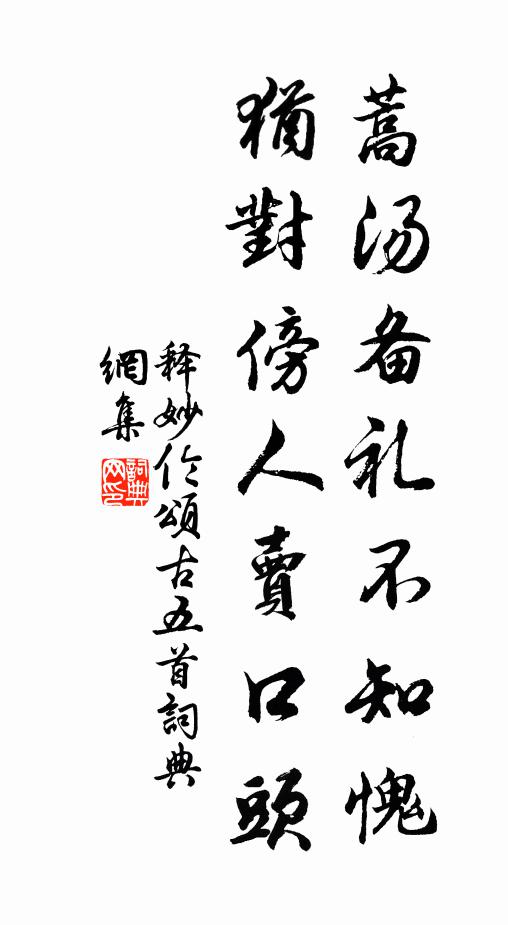 蒿汤备礼不知愧
猶對傍人賣口頭
释妙伦頌古五首詞典
網集
詞典
网印